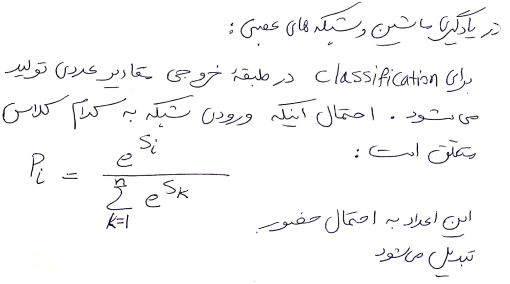 در یادگیری ماشین و شبکه های عصبی :
برای classification در طبقهٔ خروجی مقادیر عددی تولید
می شود . احتمال اینکه ورودی شبکه به کدام کلاس
متعلق است :
P_i = e^{S_i} / \sum_{k=1}^{n} e^{S_k}
این اعداد به احتمال حضور
تبدیل می شود